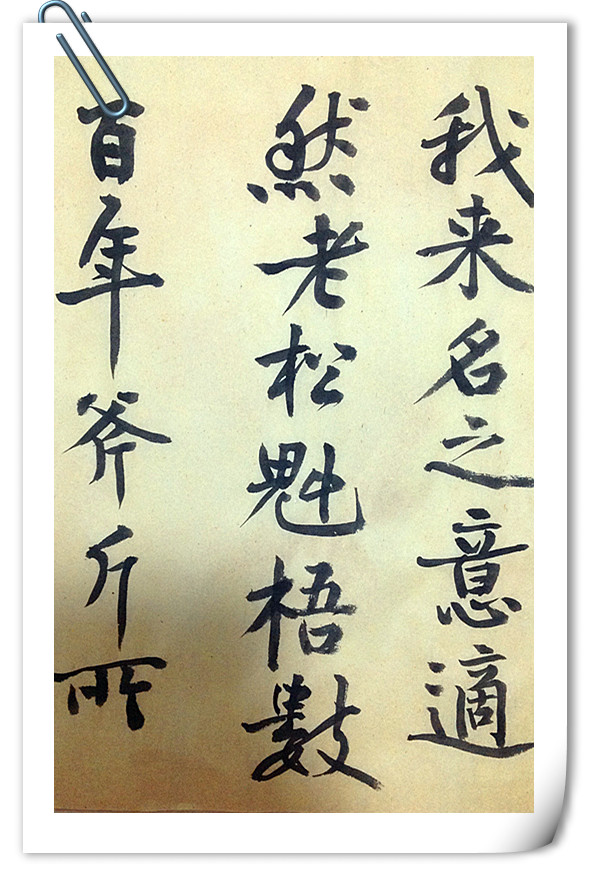 我来名之意適
然老松魁梧數
百年斧斤所